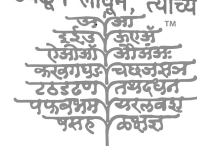 लावून, त्यांच्य
अ आ
TM
इ ई उ ऊ ए ॲ
ऐ ओ औ ऑ अं अः
क ख ग घ ङ च छ ज झ ञ
ट ठ ड ढ ण त थ द ध न
प फ ब भ म य र ल व श
ष स ह ळ क्ष ज्ञ